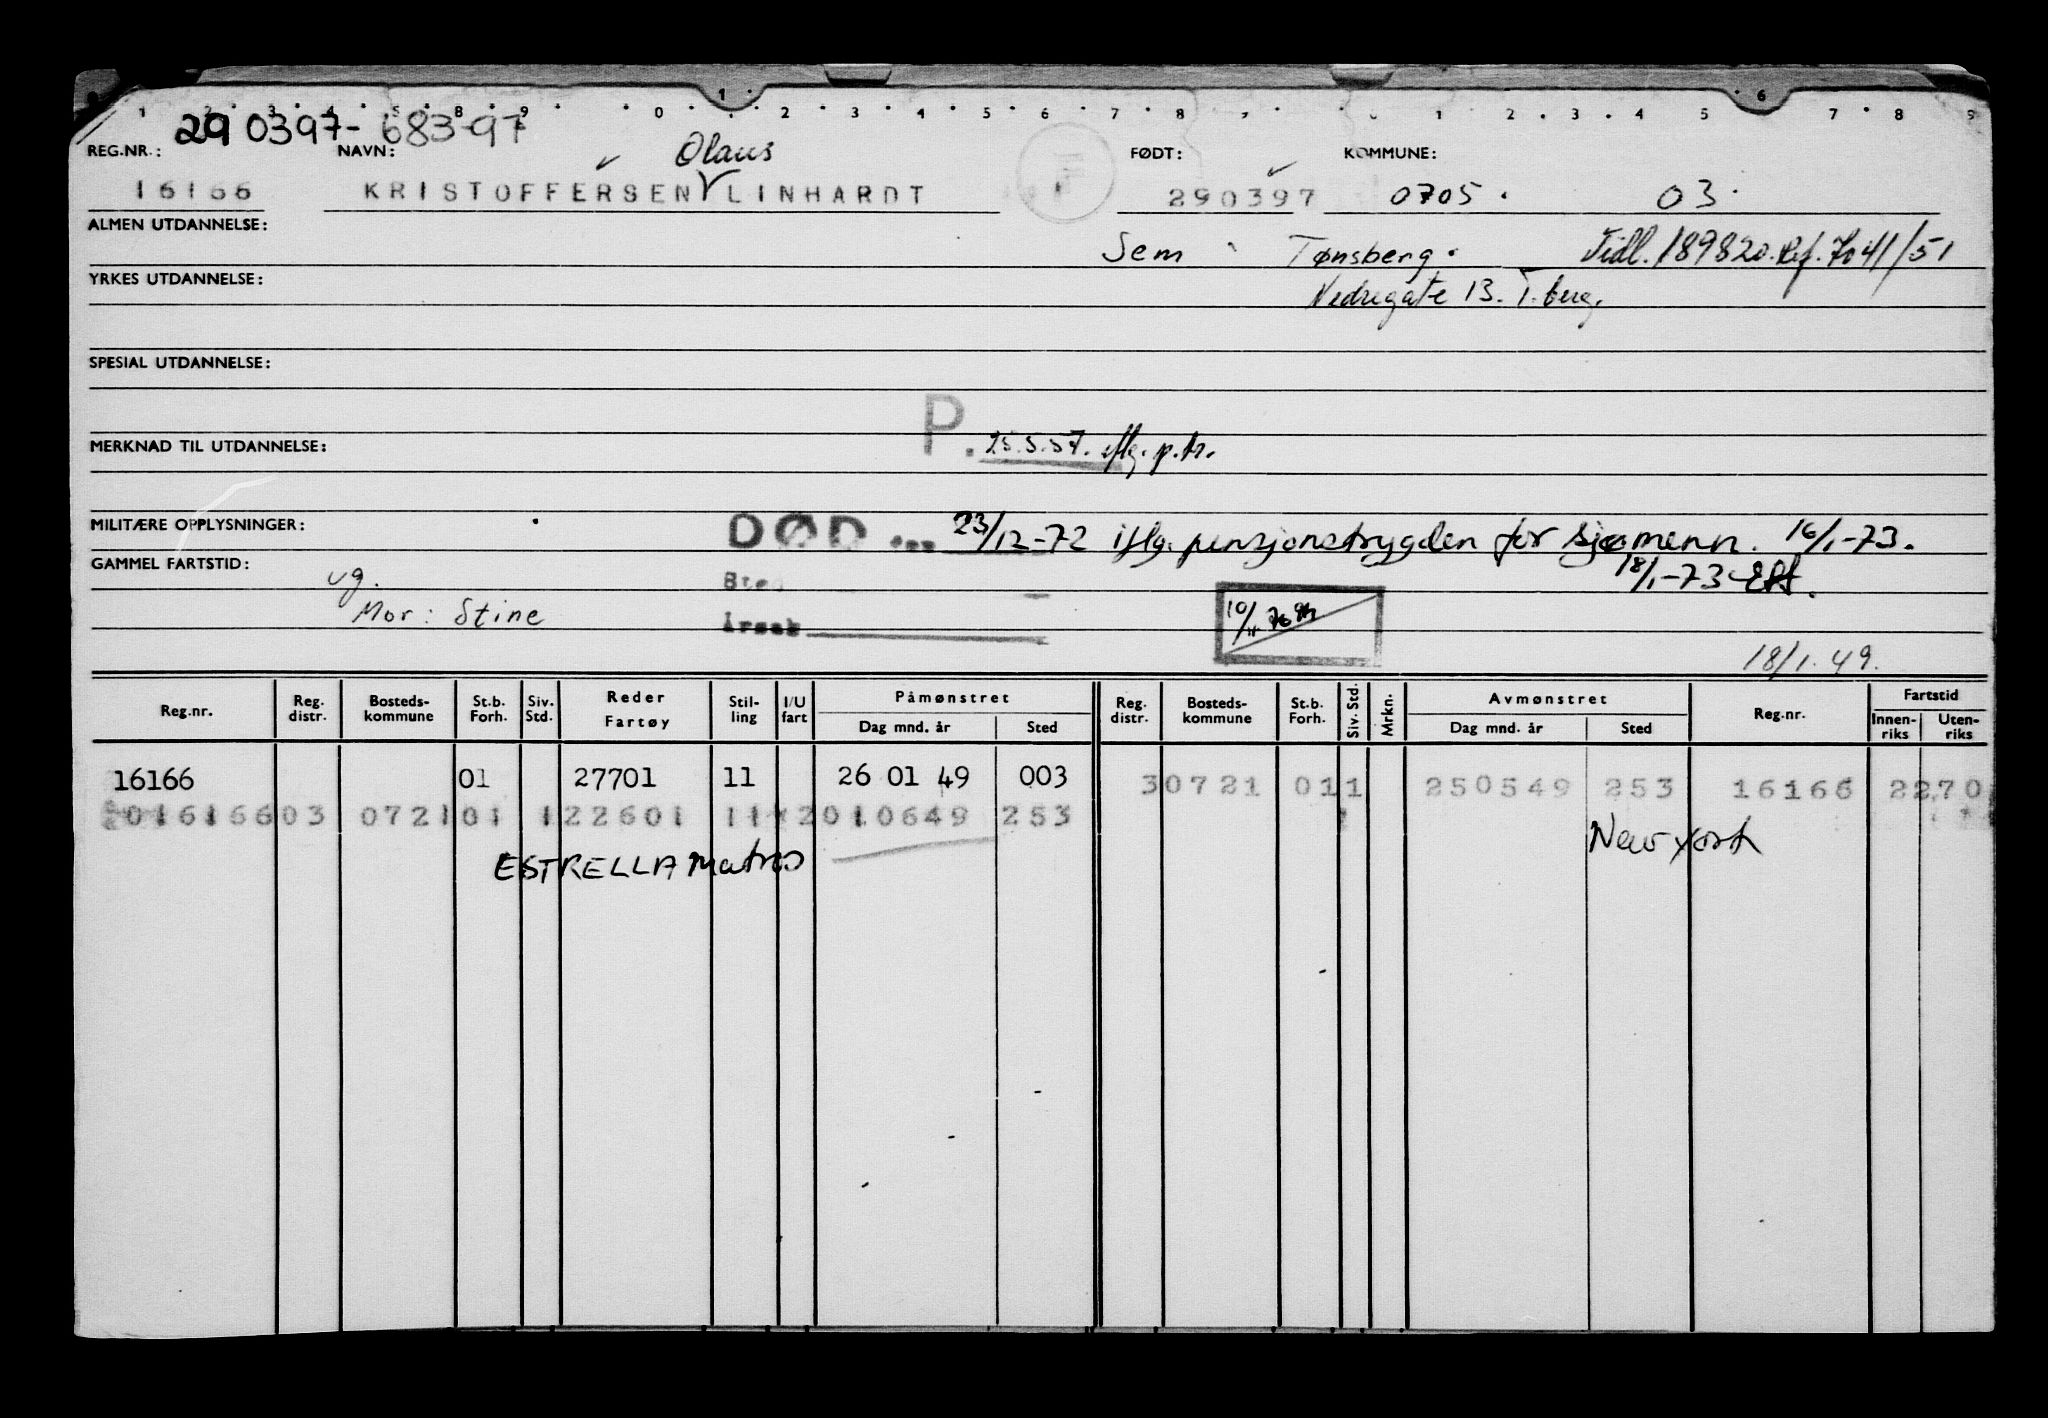 1 2 3 4 5 8 9 0 1 2 3 4 5 6 7 8 9 0 1 2 3 4 5 6 7 8 9
290397-68397
REG.NR.: NAVN: Olaus FØDT: KOMMUNE:
16166 KRISTOFFERSEN LINHARDT 290397 0705. 03.
ALMEN UTDANNELSE:
Sem Tønsberg. Tidl. 189820. Ref. 7041/51
YRKES UTDANNELSE:
Nedregate 13. T.berg.
SPESIAL UTDANNELSE:
MERKNAD TIL UTDANNELSE: P. 25.5.57. iflg. p.tr.
MILITÆRE OPPLYSNINGER: DØD ... 23/12-72 iflg. pensjonstrygden for sjømenn. 16/1-73.
GAMMEL FARTSTID: ug. Sted 18/1-73
Mor: Stine Årsak 10/11
18/1.49.
Reg.nr. Reg. distr. Bosteds-kommune St.b. Forh. Siv. Std. Reder Fartøy Stil-ling I/U fart Påmønstret Dag mnd. år Sted Reg. distr. Bosteds-kommune St.b. Forh. Siv. Std. Mrkn. Avmønstret Dag mnd. år Sted Reg.nr. Fartstid Innen-riks Uten-riks
16166 01 27701 11 26 01 49 003 30721 011 250549 253 16166 2270
01616603 072101 122601 11 2010649 253
ESTRELLA Matros New York